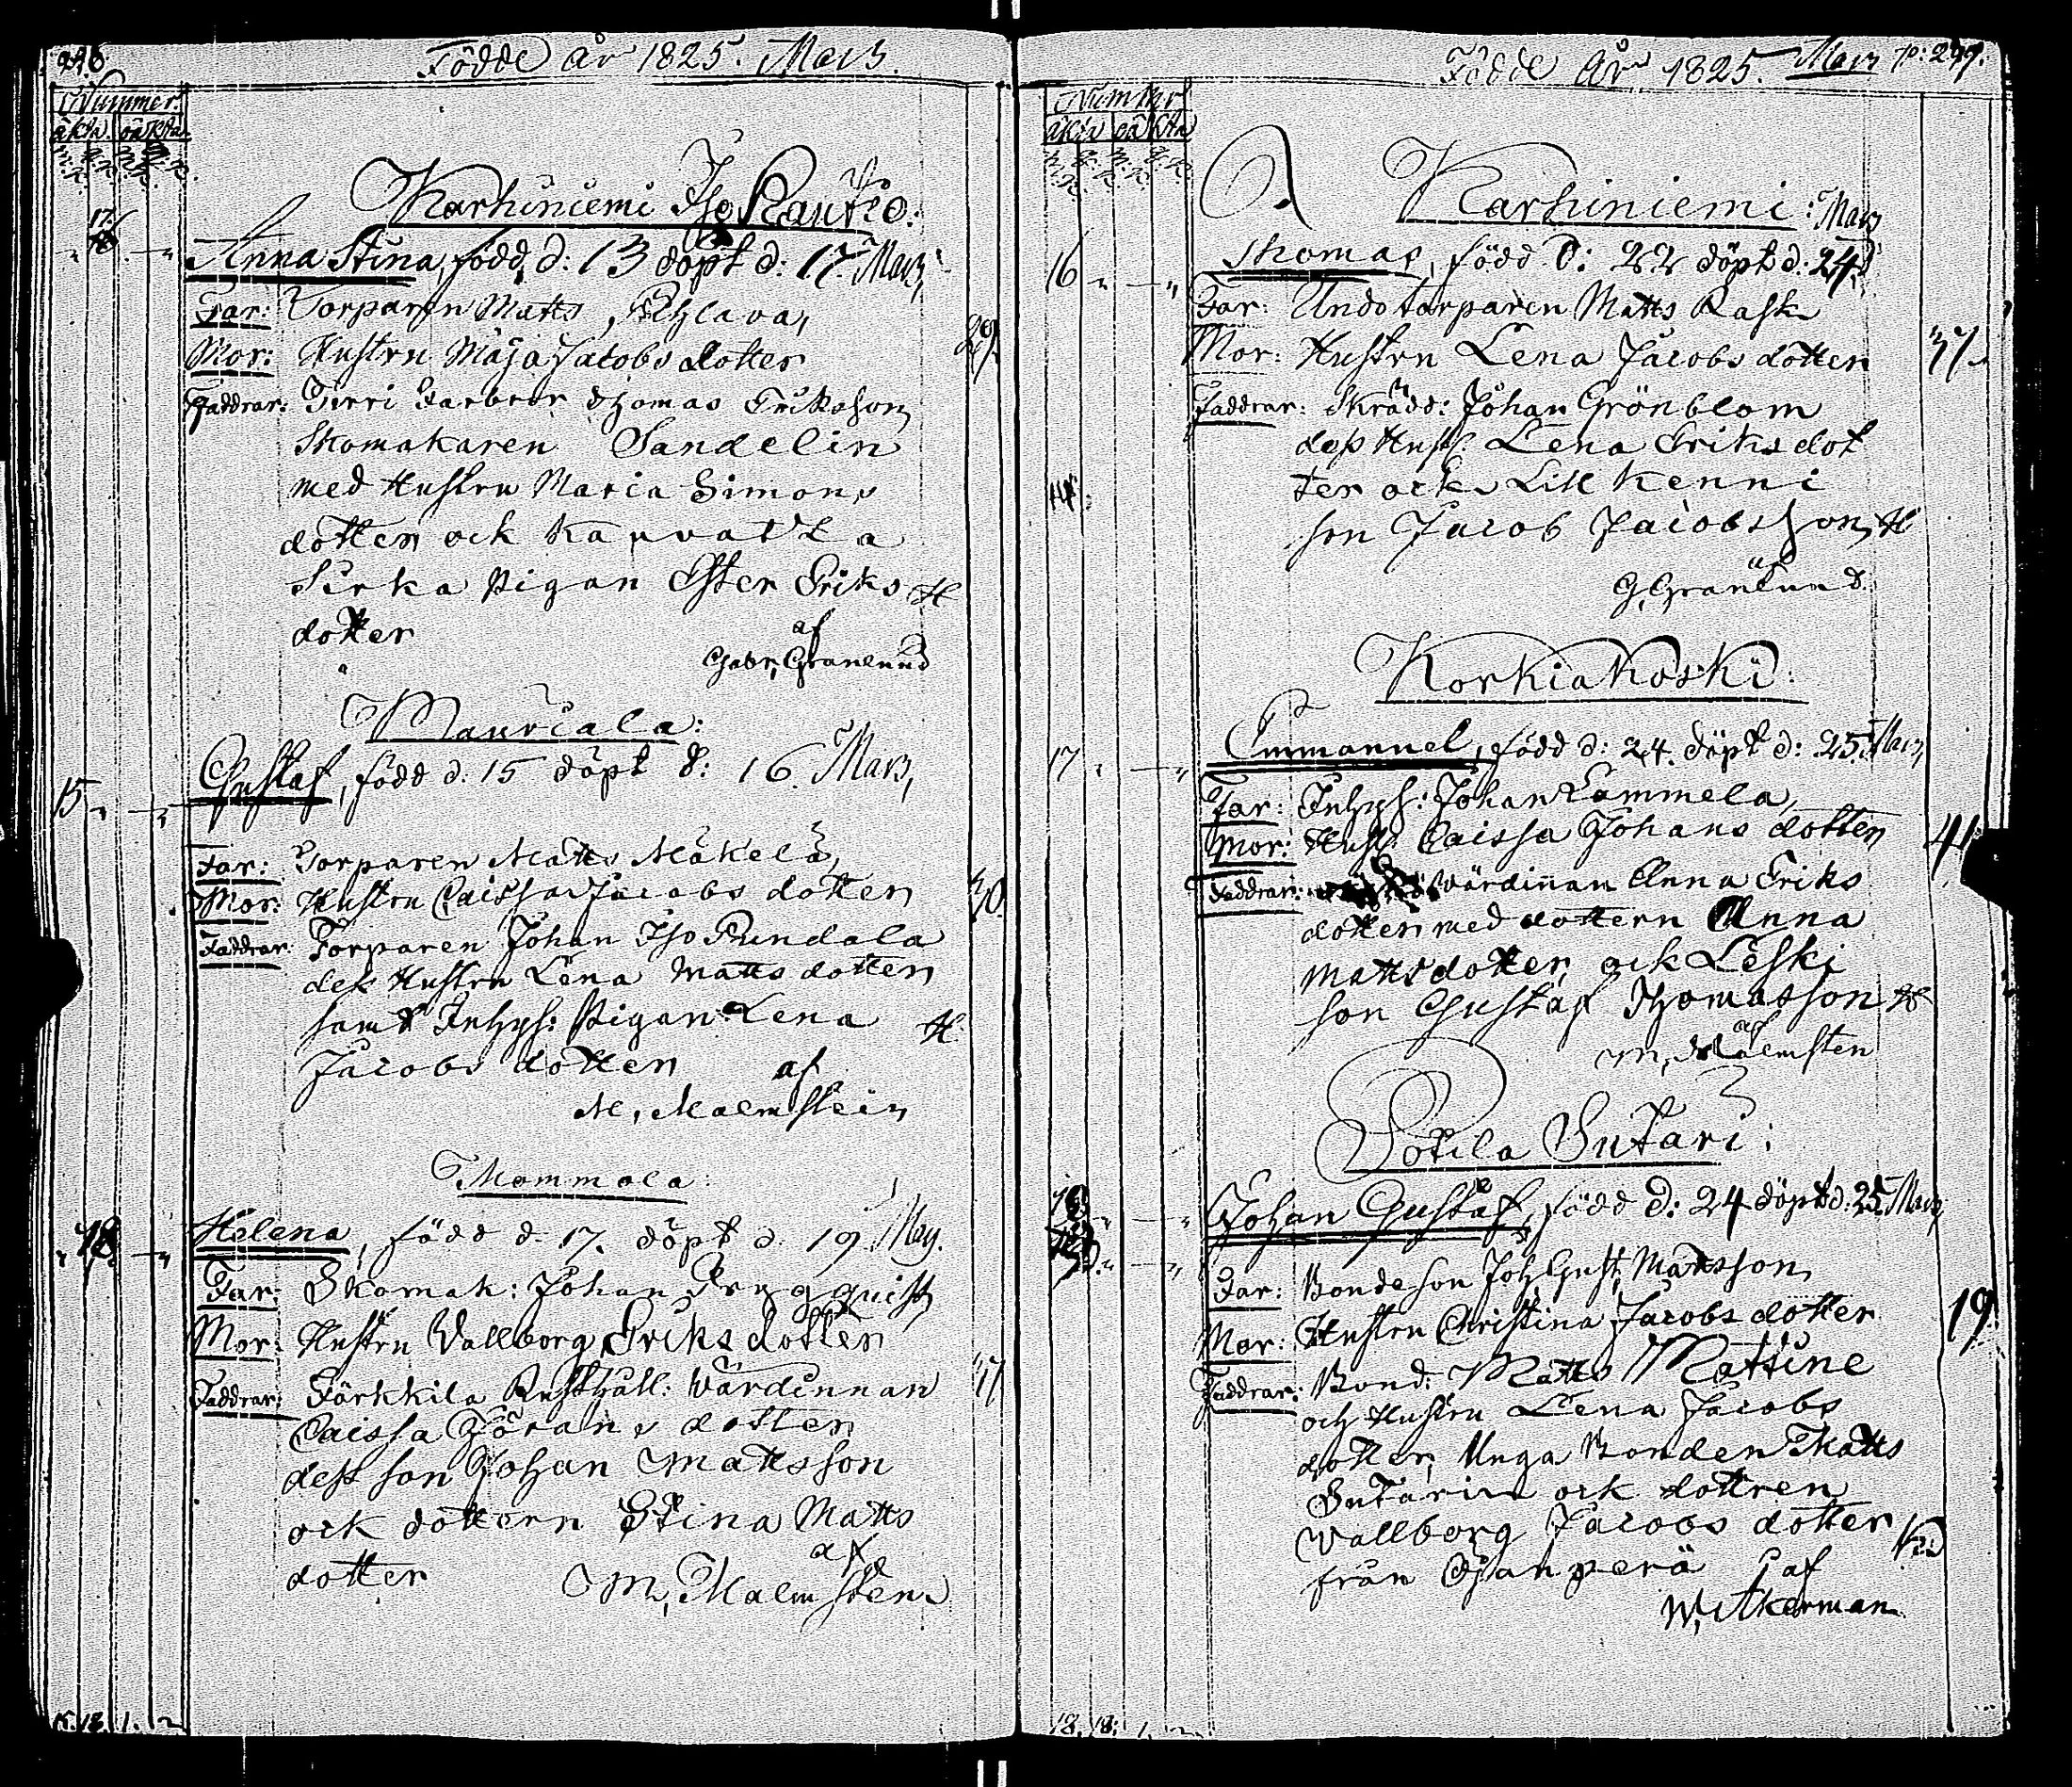 Födde år 1825. Mars.
Nummer
äkta. oäkta
Karhiniemi Iso Rautio.
Anna Stina, född d: 13 döpt d: 17 Mars,
Far: Torparen Matts
Mor: Hustru Maja Jacobs dotter
29.
Faddrar: Thomas Eriksson
Skomakaren Sandelin
med Hustru Maria Simons
dotter ock Kauvatza
Sirka Pigan Ester Eriks
dotter
af
Gabr, Granlund
Mauriala:
Gustaf, född d. 15 döpt d: 16 Mars,
15
Far: Torparen Matts Mäkelä,
Mor: Hustru Caissa Jacobs dotter
Faddrar: Torparen Johan Iso Rundala
dess Hustru Lena Matts dotter
samt Inhys: Pigan Lena
Jacobs dotter af
M, Malmstein
Mommola:
18
Helena, född d. 17. döpt d. 19 May.
Far: Skomak: Johan
Mor: Hustru Vallborg Eriks dotter
Faddrar: Järkkila Rusthåll: Wärdinnan
Caissa Jörans dotter
dess son Johan Mattsson
ock dottern Stina Matts
dotter
af
M, Malmsten
Födde År 1825. Mars p: 297.
Nummer
äkta oäkta
Karhiniemi: Mars
16
Thomas, född d: 22 döpt d: 24
Far: Undotorparen Matts Rask
Mor: Hustru Lena Jacobs dotter
37
Faddrar: Skrädd: Johan Grönblom
dess Hust: Lena Eriks dot
ter ock Lill Kenni
son Jacob Jacobsson
af
G, Granlund
Korkiakoski:
17
Emmanuel, född d: 24. döpt d: 25. Mars,
Far: Inhys: Johan Lammela,
Mor: Hust: Caissa Johans dotter
41
Faddrar: Wärdinnan Anna Eriks
dotter med dottern Anna
Matts dotter, ock Leski
son Gustaf Thomasson
af
M, Malmsten
Potila Sutari:
Johan Gustaf, född d: 24 döpt d: 25 Mars
Far: Bondeson Joh Gust, Mattsson
Mor: Hustru Christina Jacobs dotter
19
Faddrar: Bond: Matts Mattine
och Hustru Lena Jacobs
dotter, Unga Bonden Matts
Sutari ock dottren
Wallborg Jacobs dotter
från Ojanperä af
W, Akerman
18. 18. 1.